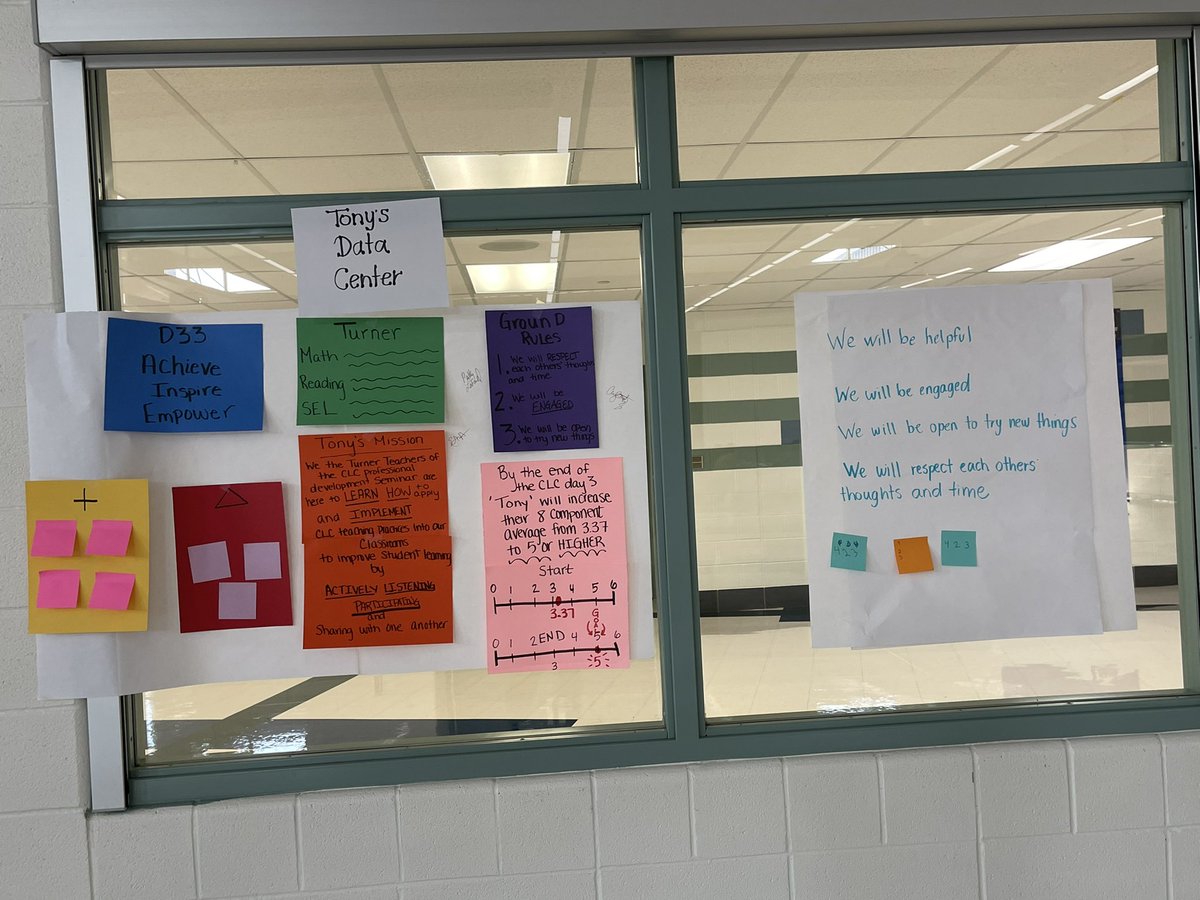 Tony's
Data
Center
D33
Achieve
Inspire
Empower
Turner
Math
Reading
SEL
Ground
Rules
1. We will RESPECT
each others' thoughts
and time
2. We will be
ENGAGED
3. We will be open
to try new things
+
△
Tony's Mission
We the Turner Teachers of
the CLC professional
development Seminar are
here to LEARN HOW to apply
and IMPLEMENT
CLC teaching practices into our
Classrooms
to improve student learning
by
ACTIVELY LISTENING
PARTICIPATING
and
Sharing with one another
By the end of
the CLC day 3
'Tony' will increase
their 8 component
average from 3.37
to 5 or HIGHER
Start
0 1 2 3 4 5 6
3.37 GOAL
0 1 2 END 4 5 6
3 5
We will be helpful
We will be engaged
We will be open to try new things
We will respect each others'
thoughts and time
4 2 3
4 2 3